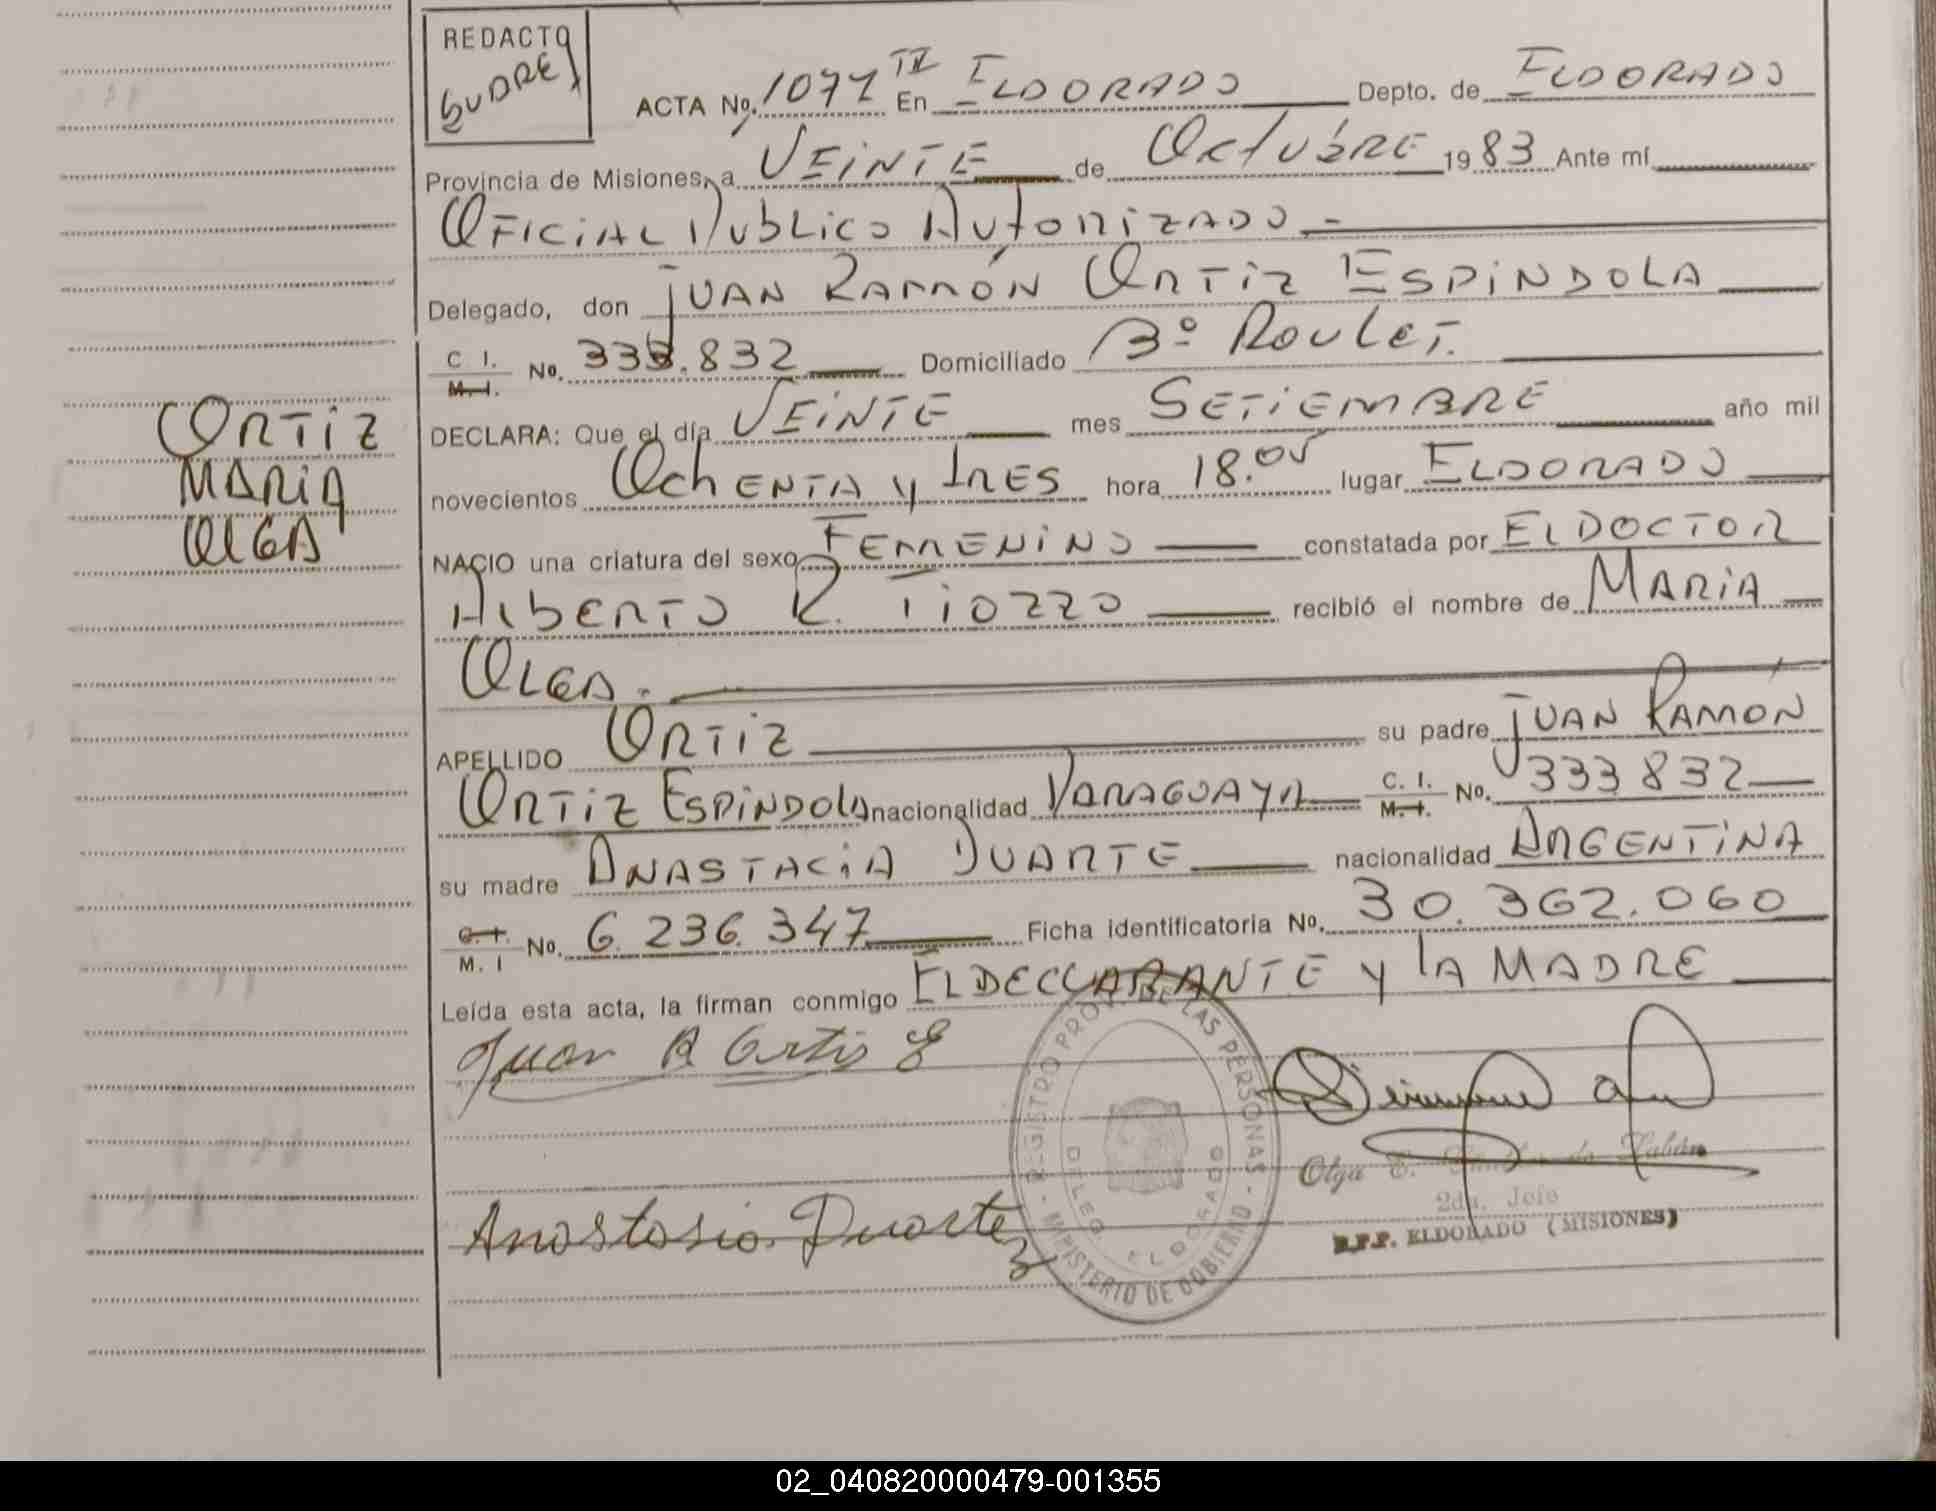 REDACTO
ACTA No. 1071 TI En ELDORADO Depto. de ELDORADO
Provincia de Misiones, a VEiNTE de OctubRE 1983 Ante mí
OFICIAL Publico AutoriZADO -
Delegado, don JUAN RAMÓN ORTiZ ESPiNDOLA
C I. M. I. No. 333.832 Domiciliado Bº Roulet.
DECLARA: Que el día VEiNTE mes SETiEMBRE año mil
novecientos OchENTA y TRES hora 18.05 lugar ELDORADO
ORTiZ
MARiA
OlGA
NACIO una criatura del sexo FEMENiNO constatada por El DOCTOR
AlbERTO R. TiOZZO recibió el nombre de MARiA
OLGA.
APELLIDO ORTiZ su padre JUAN RAMÓN
ORTiZ ESPiNDOlA nacionalidad PARAGUAYA C. I. M. I. No. 333832
su madre ANASTACiA DUARTE nacionalidad ARGENTiNA
C. I. M. I No. 6.236.347 Ficha identificatoria No. 30.362.060
Leída esta acta, la firman conmigo El DECLARANTE y lA MADRE
Juan R Ortis E
REGISTRO PROV. DE LAS PERSONAS - MINISTERIO DE GOBIERNO -
DELEG. ELDORADO
Olga E.
2da. Jefe
R.P.P. ELDORADO (MISIONES)
Anastasia Duarte
02_040820000479-001355